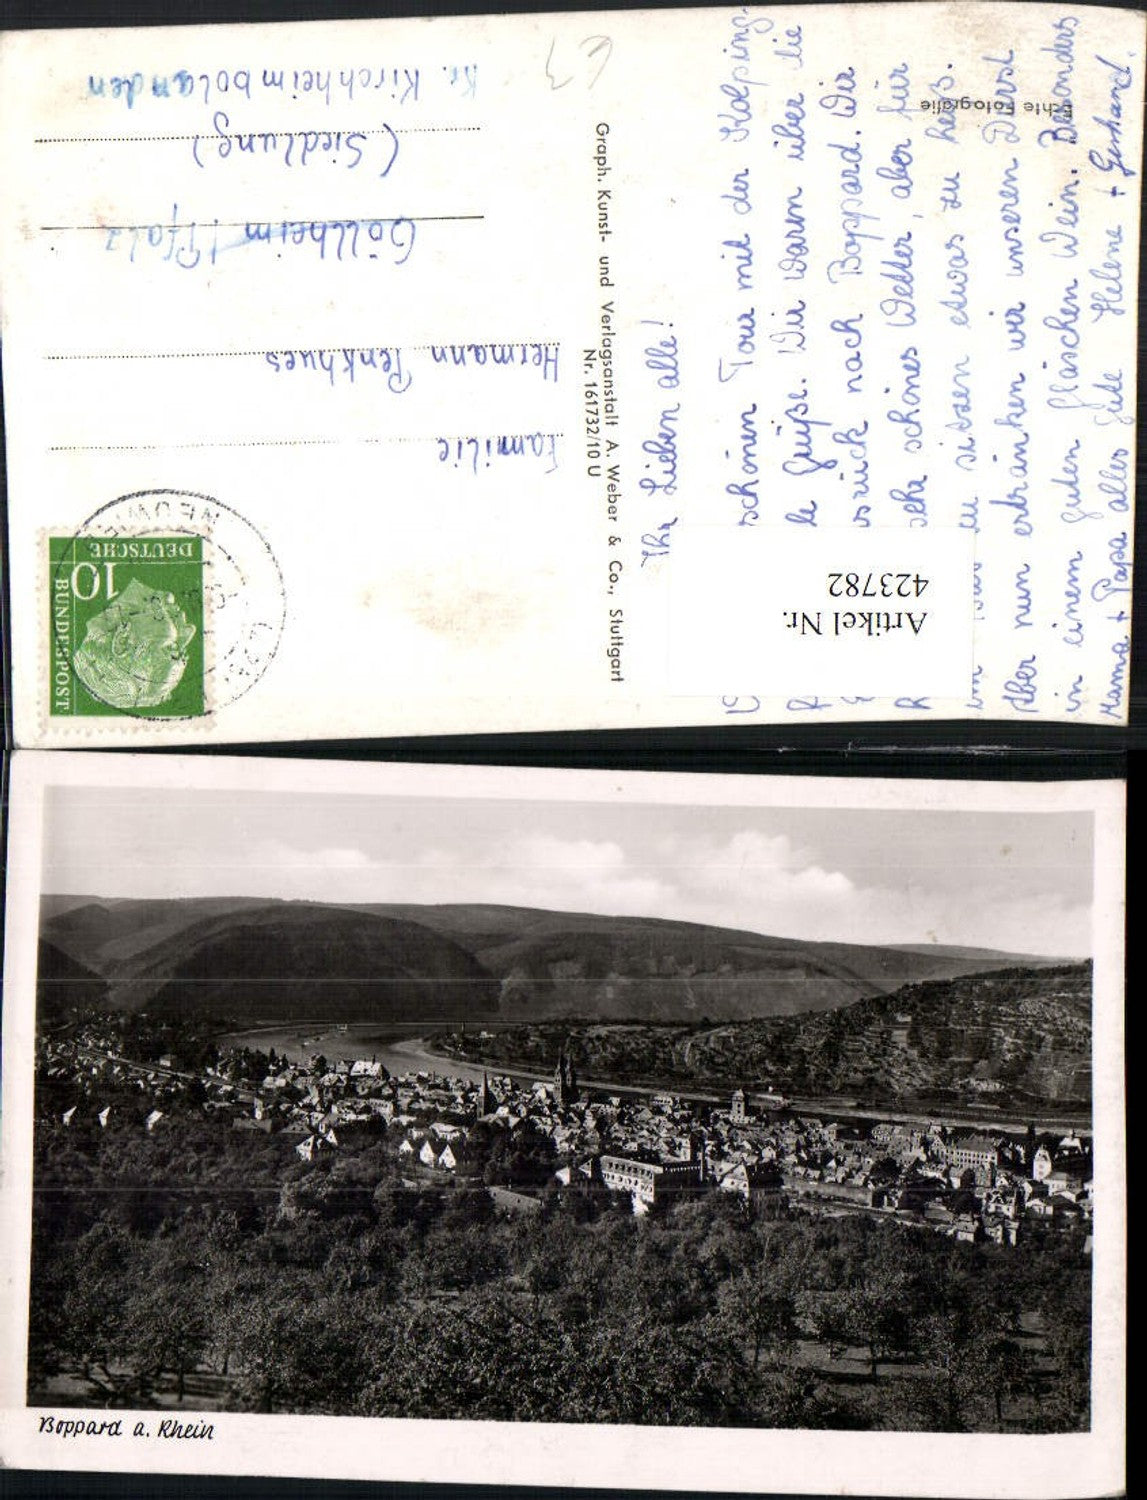 Ihr Lieben alle!
schönen Tour mit der Kolping-
Grüße. Wir waren über die
zurück nach Boppard. Wir
sehr schönes Wetter, aber für
zu sitzen etwas zu heiß.
Aber nun ertränken wir unseren Durst
in einem guten Gläschen Wein. Besonders
Mama + Papa alles Gute Helene + Gerhard.
Echte Fotografie
Artikel Nr.
423782
Graph. Kunst- und Verlagsanstalt A. Weber & Co., Stuttgart
Nr. 161732/10 U
DEUTSCHE
BUNDESPOST
10
Familie
Hermann Penkhues
Göllheim / Pfalz
(Siedlung)
Kr. Kirchheimbolanden
Boppard a. Rhein